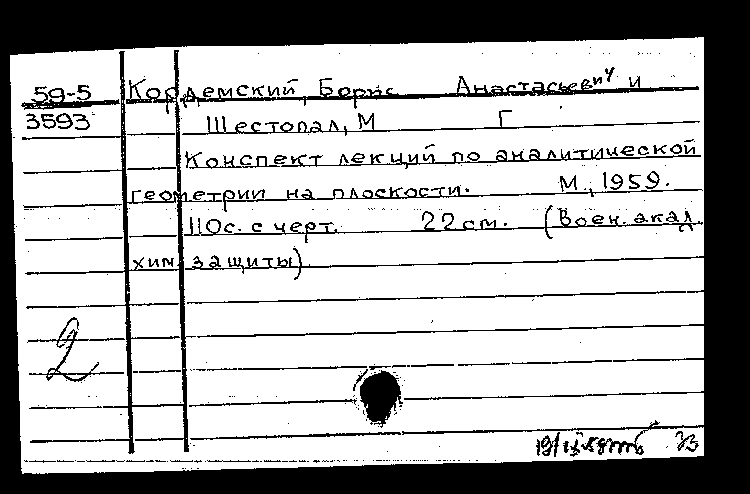 59-5 Кордемский, Борис Анастасьевич и
3593 Шестопал, М Г
Конспект лекций по аналитической
геометрии на плоскости. М., 1959.
110с. с черт. 22см. (Воен. акад.
хим. защиты)
2